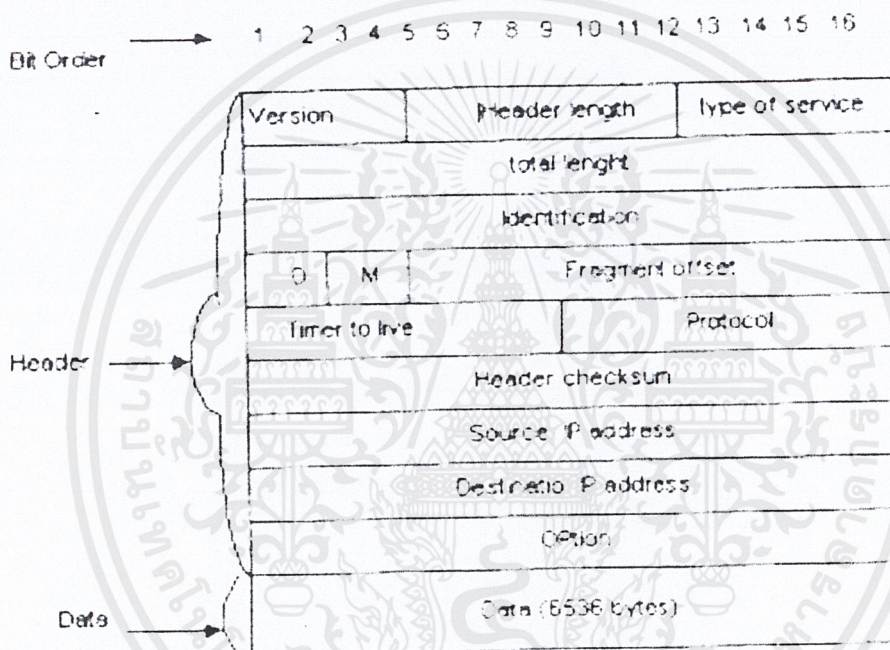 Bit Order 1 2 3 4 5 6 7 8 9 10 11 12 13 14 15 16
Version Header length Type of service
total lenght
Identification
D M Fragment offset
Timer to live Protocol
Header
Header checksum
Source IP address
Destinatio IP address
Option
Data
Data (6536 bytes)